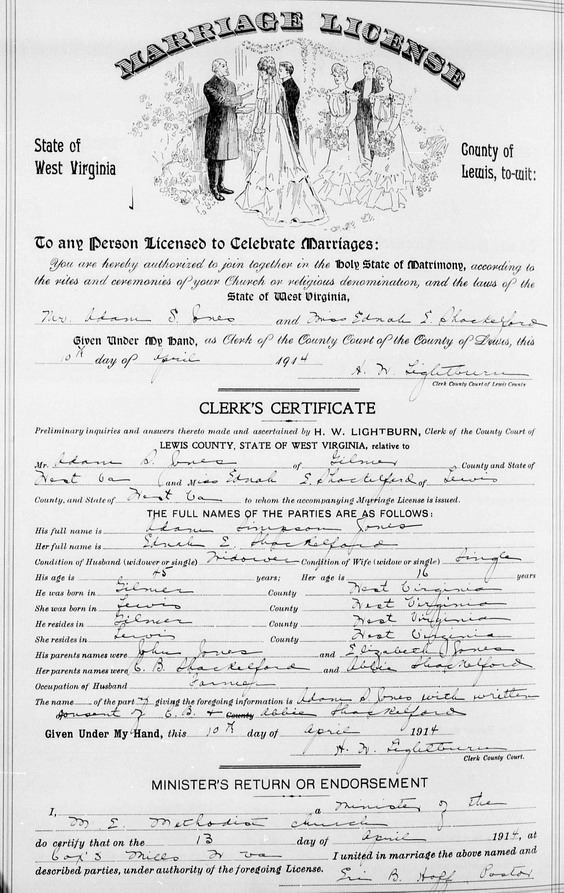 MARRIAGE LICENSE
State of
West Virginia
County of
Lewis, to-wit:
To any Person Licensed to Celebrate Marriages:
You are hereby authorized to join together in the Holy State of Matrimony, according to
the rites and ceremonies of your Church or religious denomination, and the laws of the
State of West Virginia,
Mr. Adam S. Jones and Miss Ednah E. Shackelford
Given Under My Hand, as Clerk of the County Court of the County of Lewis, this
10th day of April 1914
H. W. Lightburn
Clerk County Court of Lewis County
CLERK'S CERTIFICATE
Preliminary inquiries and answers thereto made and ascertained by H. W. LIGHTBURN, Clerk of the County Court of
LEWIS COUNTY, STATE OF WEST VIRGINIA, relative to
Mr. Adam S. Jones of Gilmer County and State of
West Va and Miss Ednah E. Shackelford of Lewis
County, and State of West Va to whom the accompanying Marriage License is issued.
THE FULL NAMES OF THE PARTIES ARE AS FOLLOWS:
His full name is Adam Simpson Jones
Her full name is Ednah E. Shackelford
Condition of Husband (widower or single) Widower Condition of Wife (widow or single) Single
His age is 45 years; Her age is 16 years
He was born in Gilmer County West Virginia
She was born in Lewis County West Virginia
He resides in Gilmer County West Virginia
She resides in Lewis County West Virginia
His parents names were John Jones and Elizabeth Jones
Her parents names were C. B. Shackelford and Abbie Shackelford
Occupation of Husband Farmer
The name of the party giving the foregoing information is Adam S Jones with written
consent of C. B. & County Abbie Shackelford
Given Under My Hand, this 10th day of April 1914
H. W. Lightburn
Clerk County Court.
MINISTER'S RETURN OR ENDORSEMENT
I, a Minister of the
M. E. Methodist church
do certify that on the 13 day of April 1914, at
Cox's Mills W Va I united in marriage the above named and
described parties, under authority of the foregoing License. B. Hoff Pastor